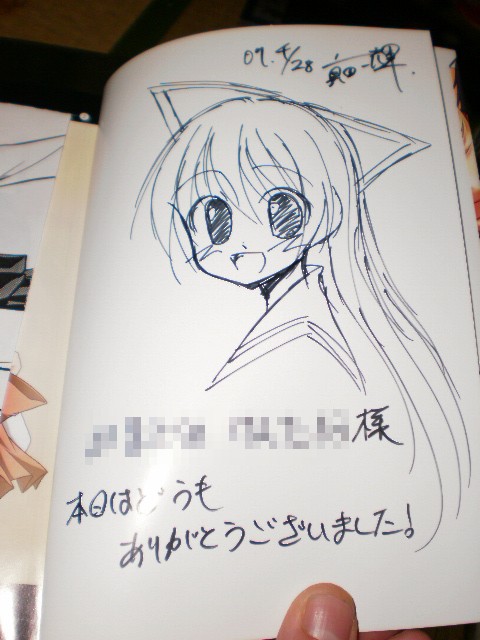 07. 4/28 真田一輝.
様
本日はどうも
ありがとうございました!